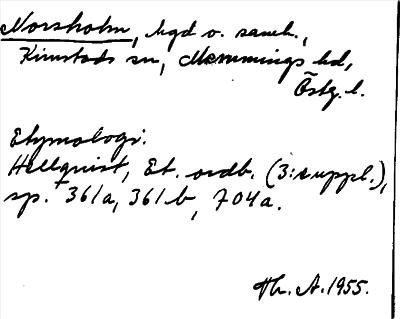 Norsholm, hgd o. samh.,
Kimstads sn, Memmings hd,
Östg. l.
Etymologi.
Hellquist, Et. ordb. (3:suppl.),
sp. 361a, 361b, 704a.
Th. A. 1955.